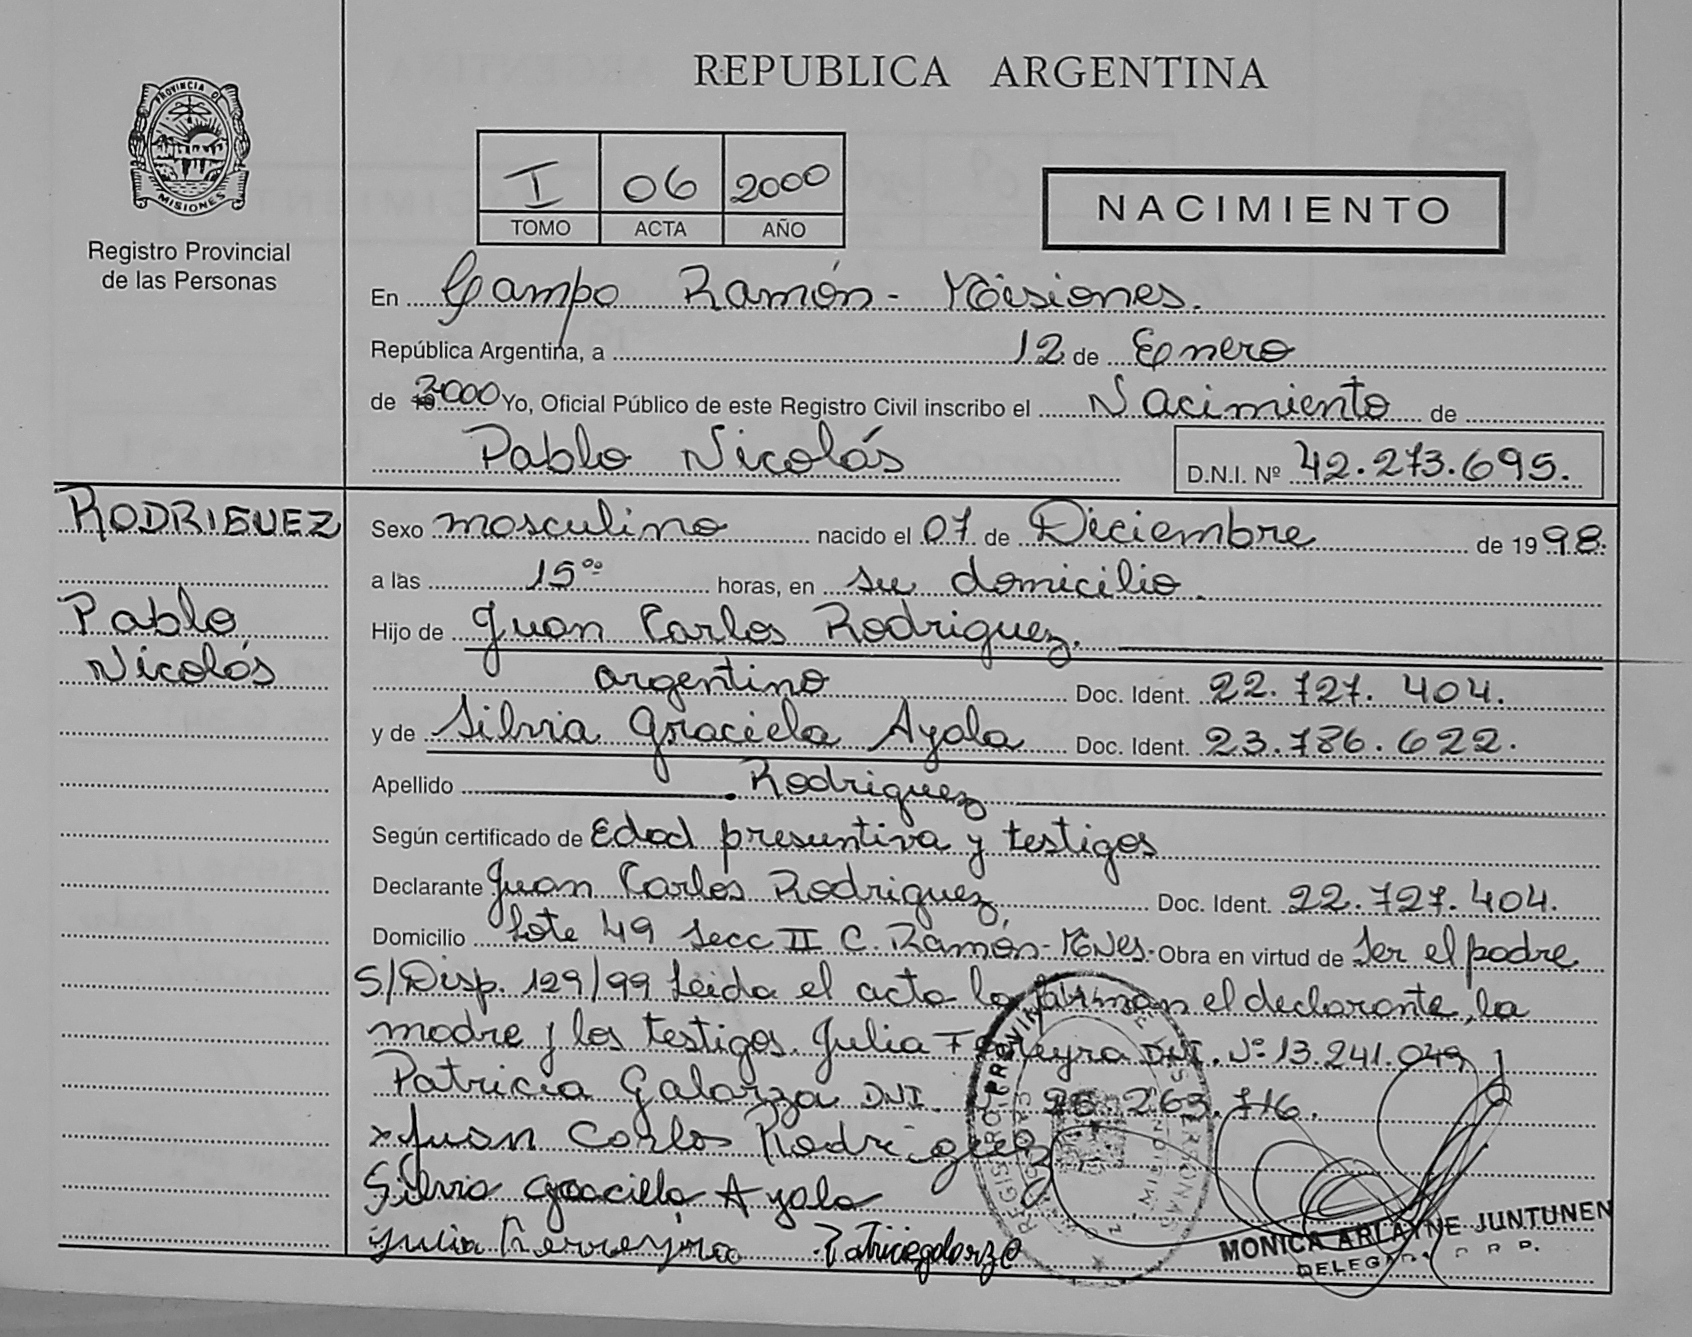 REPUBLICA ARGENTINA
PROVINCIA DE
MISIONES
Registro Provincial
de las Personas
I 06 2000
TOMO ACTA AÑO
NACIMIENTO
En Campo Ramón - Misiones.
República Argentina, a 12 de Enero
de 2000 Yo, Oficial Público de este Registro Civil inscribo el Nacimiento de
Pablo Nicolás D.N.I. Nº 42.273.695.
RODRIGUEZ
Pablo
Nicolás
Sexo masculino nacido el 07 de Diciembre de 1998.
a las 15⁰⁰ horas, en su domicilio.
Hijo de Juan Carlos Rodriguez.
argentino Doc. Ident. 22.727.404.
y de Silvia Graciela Ayala Doc. Ident. 23.786.622.
Apellido Rodriguez
Según certificado de Edad presuntiva y testigos
Declarante Juan Carlos Rodriguez, Doc. Ident. 22.727.404.
Domicilio Lote 49 Secc II C. Ramón - Mnes. Obra en virtud de Ser el padre
S/Disp. 129/99 Leida el acta la firman el declarante, la
madre y los testigos Julia Ferreyra DNI. Nº 13.241.049 y
Patricia Galarza DNI. 263.716.
x Juan Carlos Rodriguez
Silvia Graciela Ayala
Julia Ferreyra Patricia galarza
MONICA ARLAYNE JUNTUNEN
DELEGADA R. P. P.